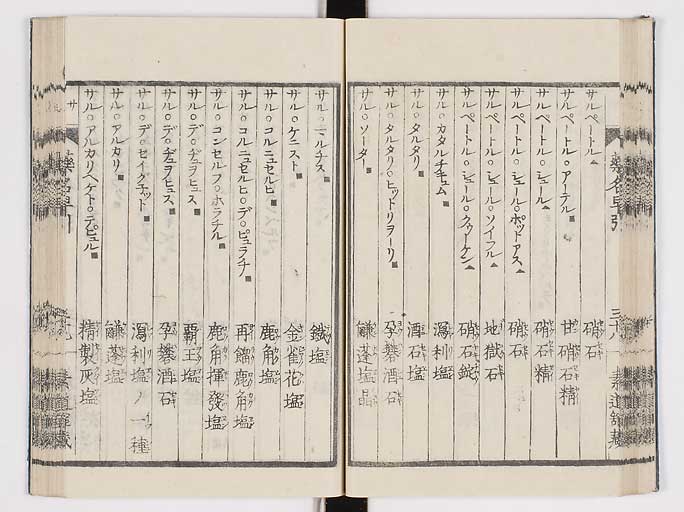 サルペートル▲ 硝石
サルペートル○アーテル■ 甘硝石精
サルペートル○シュール▲ 硝石精
サルペートル○シュール○ポットアス▲ 硝石
サルペートル○シュール○ソイフル▲ 地獄石
サルペートル○シュール○クウーケン▲ 硝石錠
サル○カタルチキュム■ 瀉利塩
サル○タルタリ■ 酒石塩
サル○タルタリ○ヒットリヲーリ■ 孕礬酒石
サル○ソーダ■ 鹻蓬塩晶
サル○マルチス■ 鐵塩
サル○ケニスト■ 金雀花塩
サル○コルニュセルヒ■ 鹿角塩
サル○コルニュセルヒ○デ○ピュラチ■ 再餾鹿角塩
サル○コンセルフ○ホラチル■ 鹿角揮發塩
サル○デ○ヂュヲヒュス■ 覇王塩
サル○デ○ヂュヲヒュス■ 孕礬酒石
サル○デ○セイグ子ット■ 瀉利塩ノ一種
サル○アルカリ■ 鹻蓬塩
サル○アルカリヘケト○テピュル■ 精製灰塩
サ
藥名早引
三十八